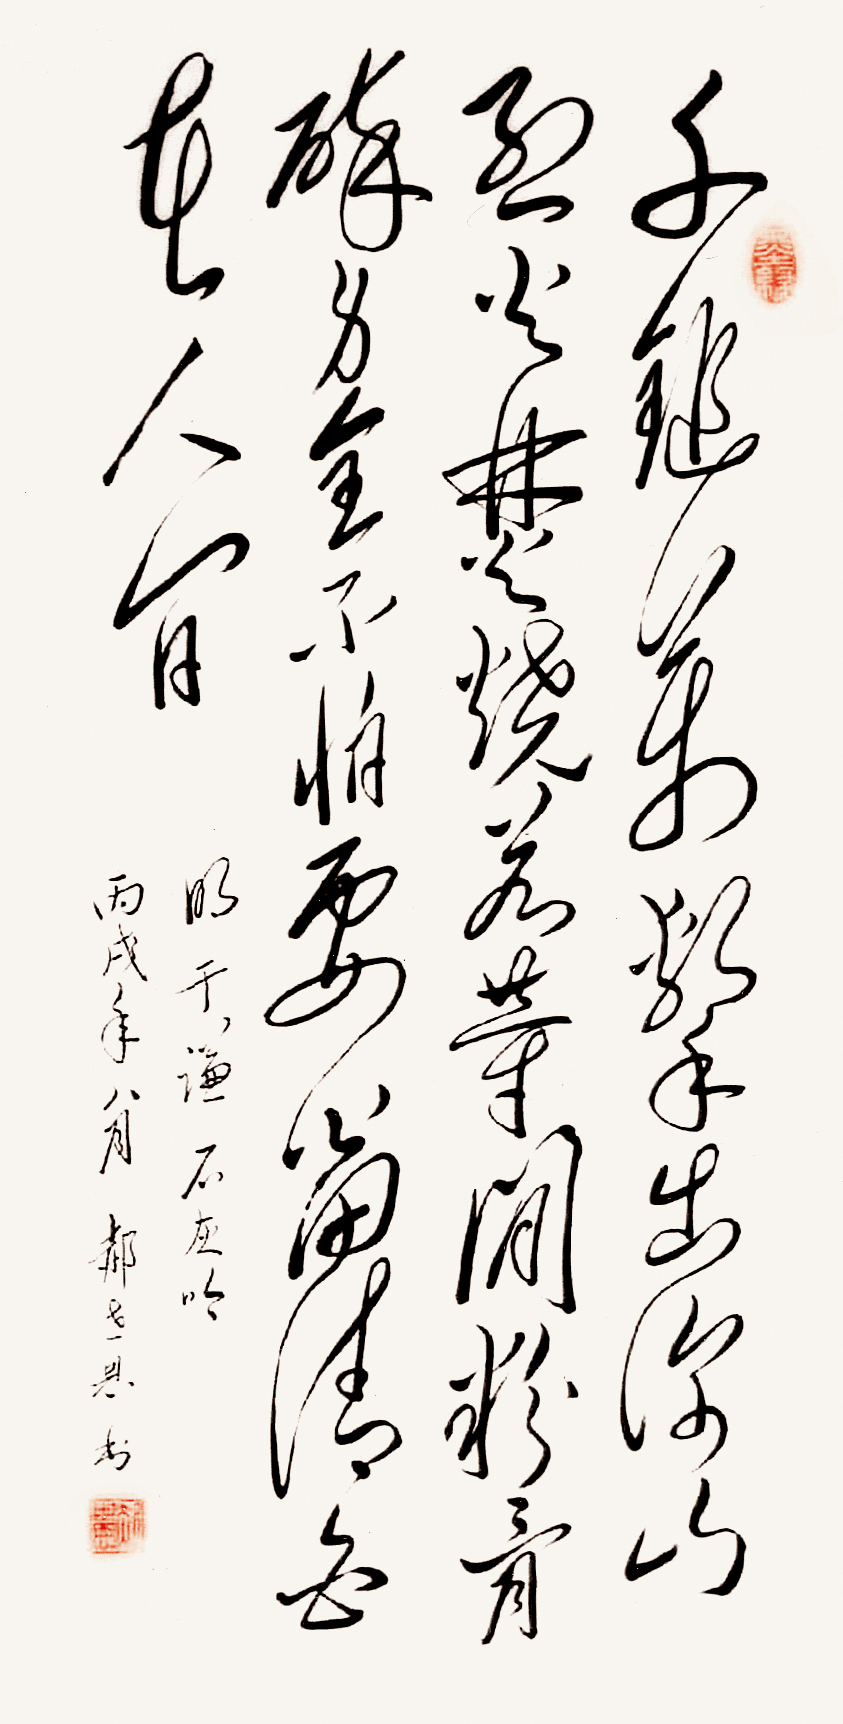 千鎚萬擊出深山
烈火焚燒若等閒粉骨
碎身全不怕要留清白
在人間
明于謙石灰吟
丙戌年八月郝恩书